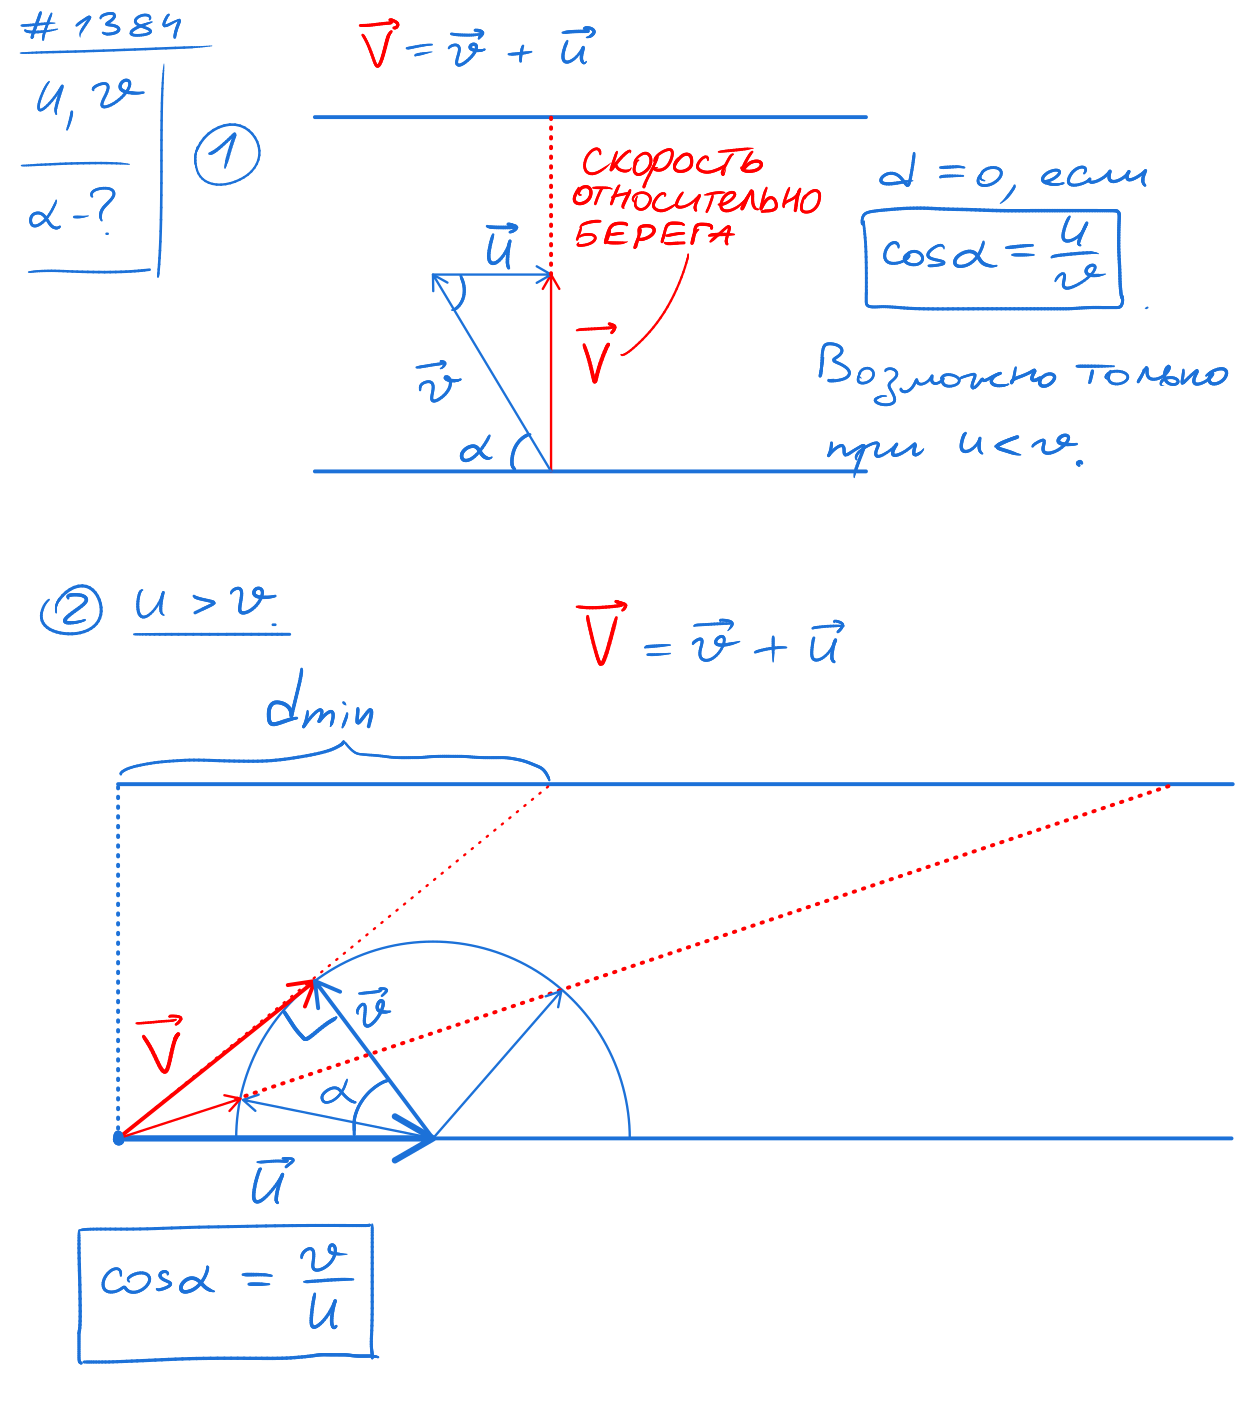 # 1384
u, v
α - ?
①
V⃗ = v⃗ + u⃗
СКОРОСТЬ
ОТНОСИТЕЛЬНО
БЕРЕГА
u⃗
v⃗
V⃗
α
d = 0, если
cosα = u/v
Возможно только
при u < v.
② u > v.
V⃗ = v⃗ + u⃗
dmin
V⃗
v⃗
α
u⃗
cosα = v/u